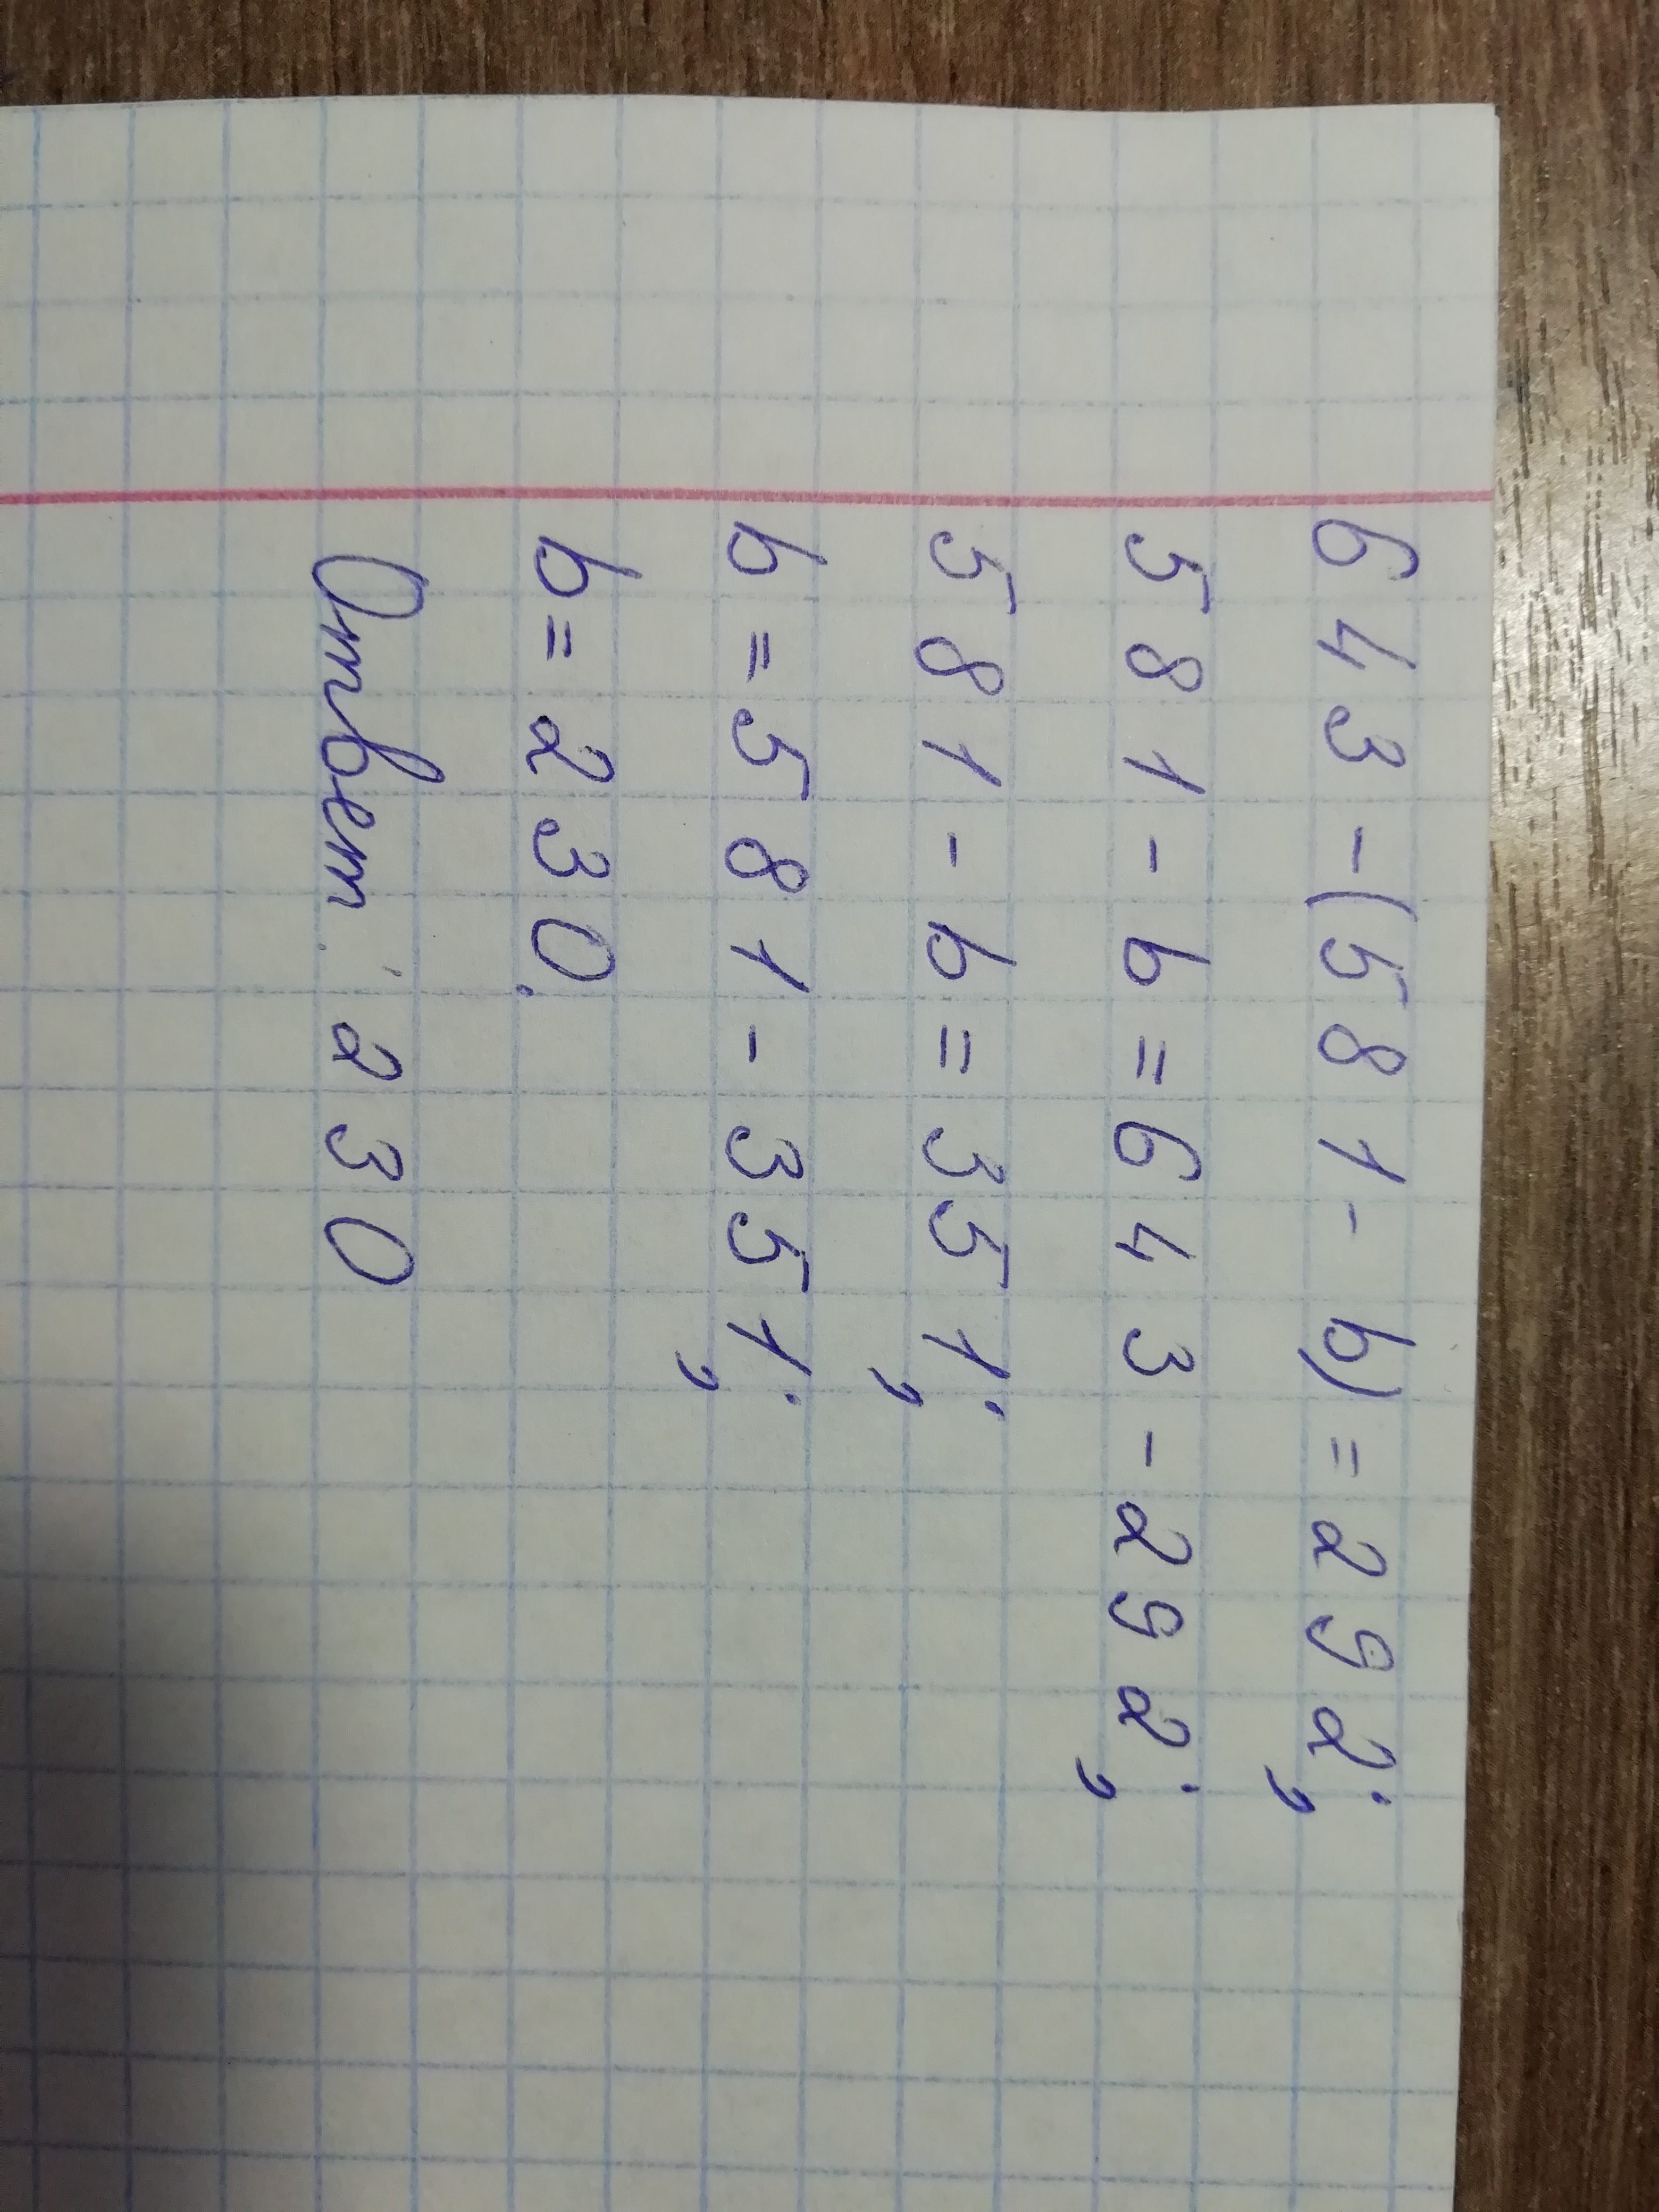 643-(581-b)=292;
581-b=643-292;
581-b=351;
b=581-351;
b=230.
Ответ: 230